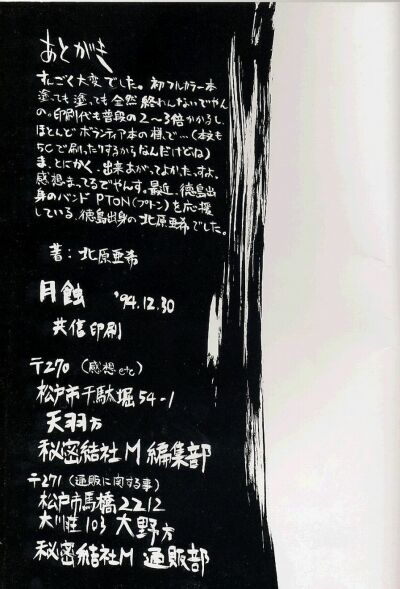 あとがき
すんごく大変でした。初フルカラー本
塗っても塗っても全然終わんないでやん
の。印刷代も普段の2〜3倍かかるし、
ほとんどボランティア本の様で…(本文も
5Cで刷ったりするからなんだけどね)
ま、とにかく、出来あがってよかったすよ。
感想まってるでやんす。最近、徳島出
身のバンド PTON(プトン)を応援
している、徳島出身の北原亜希でした。
著:北原亜希
月蝕 '94.12.30
共信印刷
〒270 (感想etc)
松戸市千駄堀54-1
天羽方
秘密結社M 編集部
〒271 (通販に関する事)
松戸市馬橋2212
大川荘103 大野方
秘密結社M 通販部